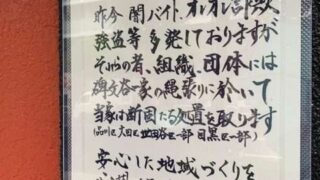 昨今 闇バイト、オレオレ詐欺
強盗等 多発しておりますが
それらの者、組織、団体には
碑文谷一家の縄張りに於いて
当家は断固たる処置を取ります
(品川区 大田区 世田谷区一部 目黒区一部)
安心した地域づくりを